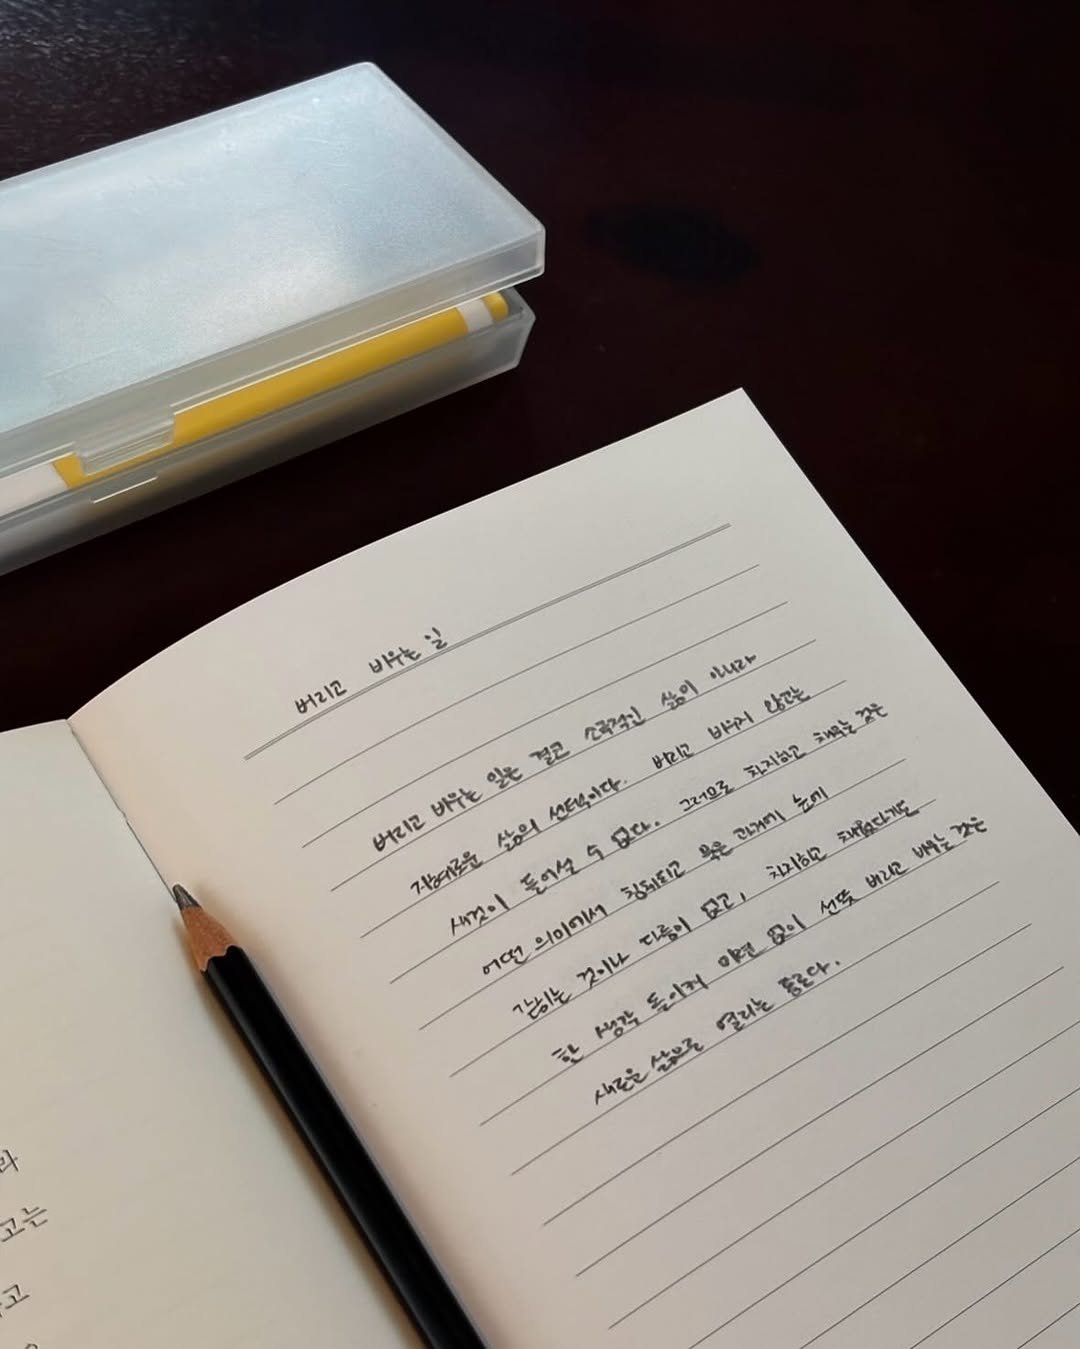 라
고는
고
버리고 비우는 일
버리고 비우는 일은 결코 소극적인 삶이 아니라
지혜로운 삶의 선택이다. 버리고 비우지 않고는
새것이 들어설 수 없다. 그러므로 차지하고 채우는 것은
어떤 의미에서 침체되고 묵은 과거에 늪에
갇히는 것이나 다름이 없고, 차지하고 채웠다가도
한 생각 돌이켜 미련 없이 선뜻 버리고 비우는 것은
새로운 삶으로 열리는 통로다.